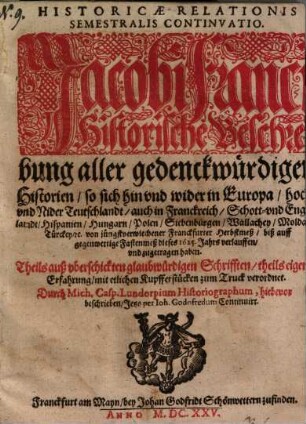 N. 9.
HISTORICÆ RELATIONIS
SEMESTRALIS CONTINVATIO.
Jacobi Franc
Historische Beschrei
bung aller gedenckwürdigen
Historien / so sich hin vnd wider in Europa / hoch
vnd Nider Teutschlandt / auch in Franckreich / Schott- vnd Eng
landt / Hispanien / Hungarn / Polen / Siebenbürgen / Wallachey / Moldaw
Türckey / ꝛc. von jüngstverwichener Franckfurter Herbstmeß / biß auff
gegenwertige Fastenmeß dieses 1625. Jahrs verlauffen /
vnd zugetragen haben.
Theils auß vberschickten glaubwürdigen Schrifften / theils eigen
Erfahrung / mit etlichen Kupfferstücken zum Truck verordnet.
Durch Mich, Casp. Lundorpium Historiographum, hiebevor
beschrieben / Jetzo per Joh. Godofredum Continuirt.
Franckfurt am Mayn / bey Johan Godfridt Schönwettern zufinden.
ANNO M. DC. XXV.